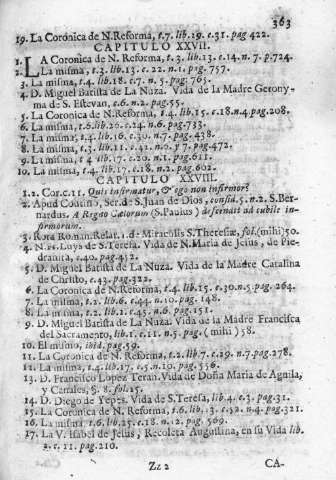 363
19. La Coronica de N. Reforma, t.7. lib.19. c.31. pag 422.
CAPITULO XXVII.
1. LA Coronica de N. Reforma, t.3. lib.13. c.14. n. 7. p.724.
2. La misma, t.3. lib.13. c.22. n.1. pag.757.
3. La misma, t.4. lib.18. c.7. n.5. pag.765.
4. D. Miguel Batista de La Nuza. Vida de la Madre Gerony-
ma de S. Estevan, c.6. n.2. pag.55.
5. La Coronica de N. Reforma, t.4. lib.15. c.18. n.4 pag.208.
6. La misma, t.6. lib.20. c.24. n.6. pag.733.
7. La misma, t.4. lib.16. c.30. n.7. pag.438.
8. La misma, t.3. lib.11. c.42. n.0. y 7. pag.472.
9. La misma, t 4 lib.17. c.20. n.1. pag.611.
10. La misma, t.4. lib.17. c.18. n.2. pag.602.
CAPITULO XXVIII.
1.2. Cor.c.11. Quis infirmatur, & ego non infirmor?
2. Apud Cousin, Ser. de S. Juan de Dios, consid. 5. n.2. S.Ber-
nardus. A Regno Cælorum (S.Paulus) descendit ad cubile in-
firmorum.
3. Rota Roman. Relat. 1. d. Miraculis S.Theresiæ, fol.(mihi)50.
4. N.P. Luys de S. Teresa. Vida de N. Maria de Jesus, de Pie-
drahita, c.40. pag.452.
5. D. Miguel Batista de La Nuza. Vida de la Madre Catalina
de Christo, c.43. pag.322.
6. La Coronica de N. Reforma, t.4. lib.15. c.30. n.5 pag. 264.
7. La misma, t.2. lib.6. c.44. n.10. pag.148.
8. La misma, t.2. lib.1. c.45. n.6. pag.151.
9. D. Miguel Batista de La Nuza. Vida de la Madre Francisca
del Sacramento, lib.1. c.11. n.5. pag. (mihi) 58.
10. El mismo, ibid. pag.59.
11. La Coronica de N. Reforma, t.2. lib.7. c.29. n.7. pag.278.
12. La misma, t.4. lib.17. c.5. n.19. pag.556.
13. D. Francisco Lopez Teran. Vida de Doña Maria de Aguila,
y Canales, §.8. fol.15.
14. D. Diego de Yepes. Vida de S.Teresa, lib.4. c.3. pag.31.
15. La Coronica de N. Reforma, t.6. lib.13. c.32. n.4. pag.321.
16. La misma, t.6. lib.23. c.18. n.12. pag. 569.
17. La V. Isabel de Jesus, Recoleta Augustina, en su Vida lib.
2. c. 11. pag.210.
Zz 2
CA-